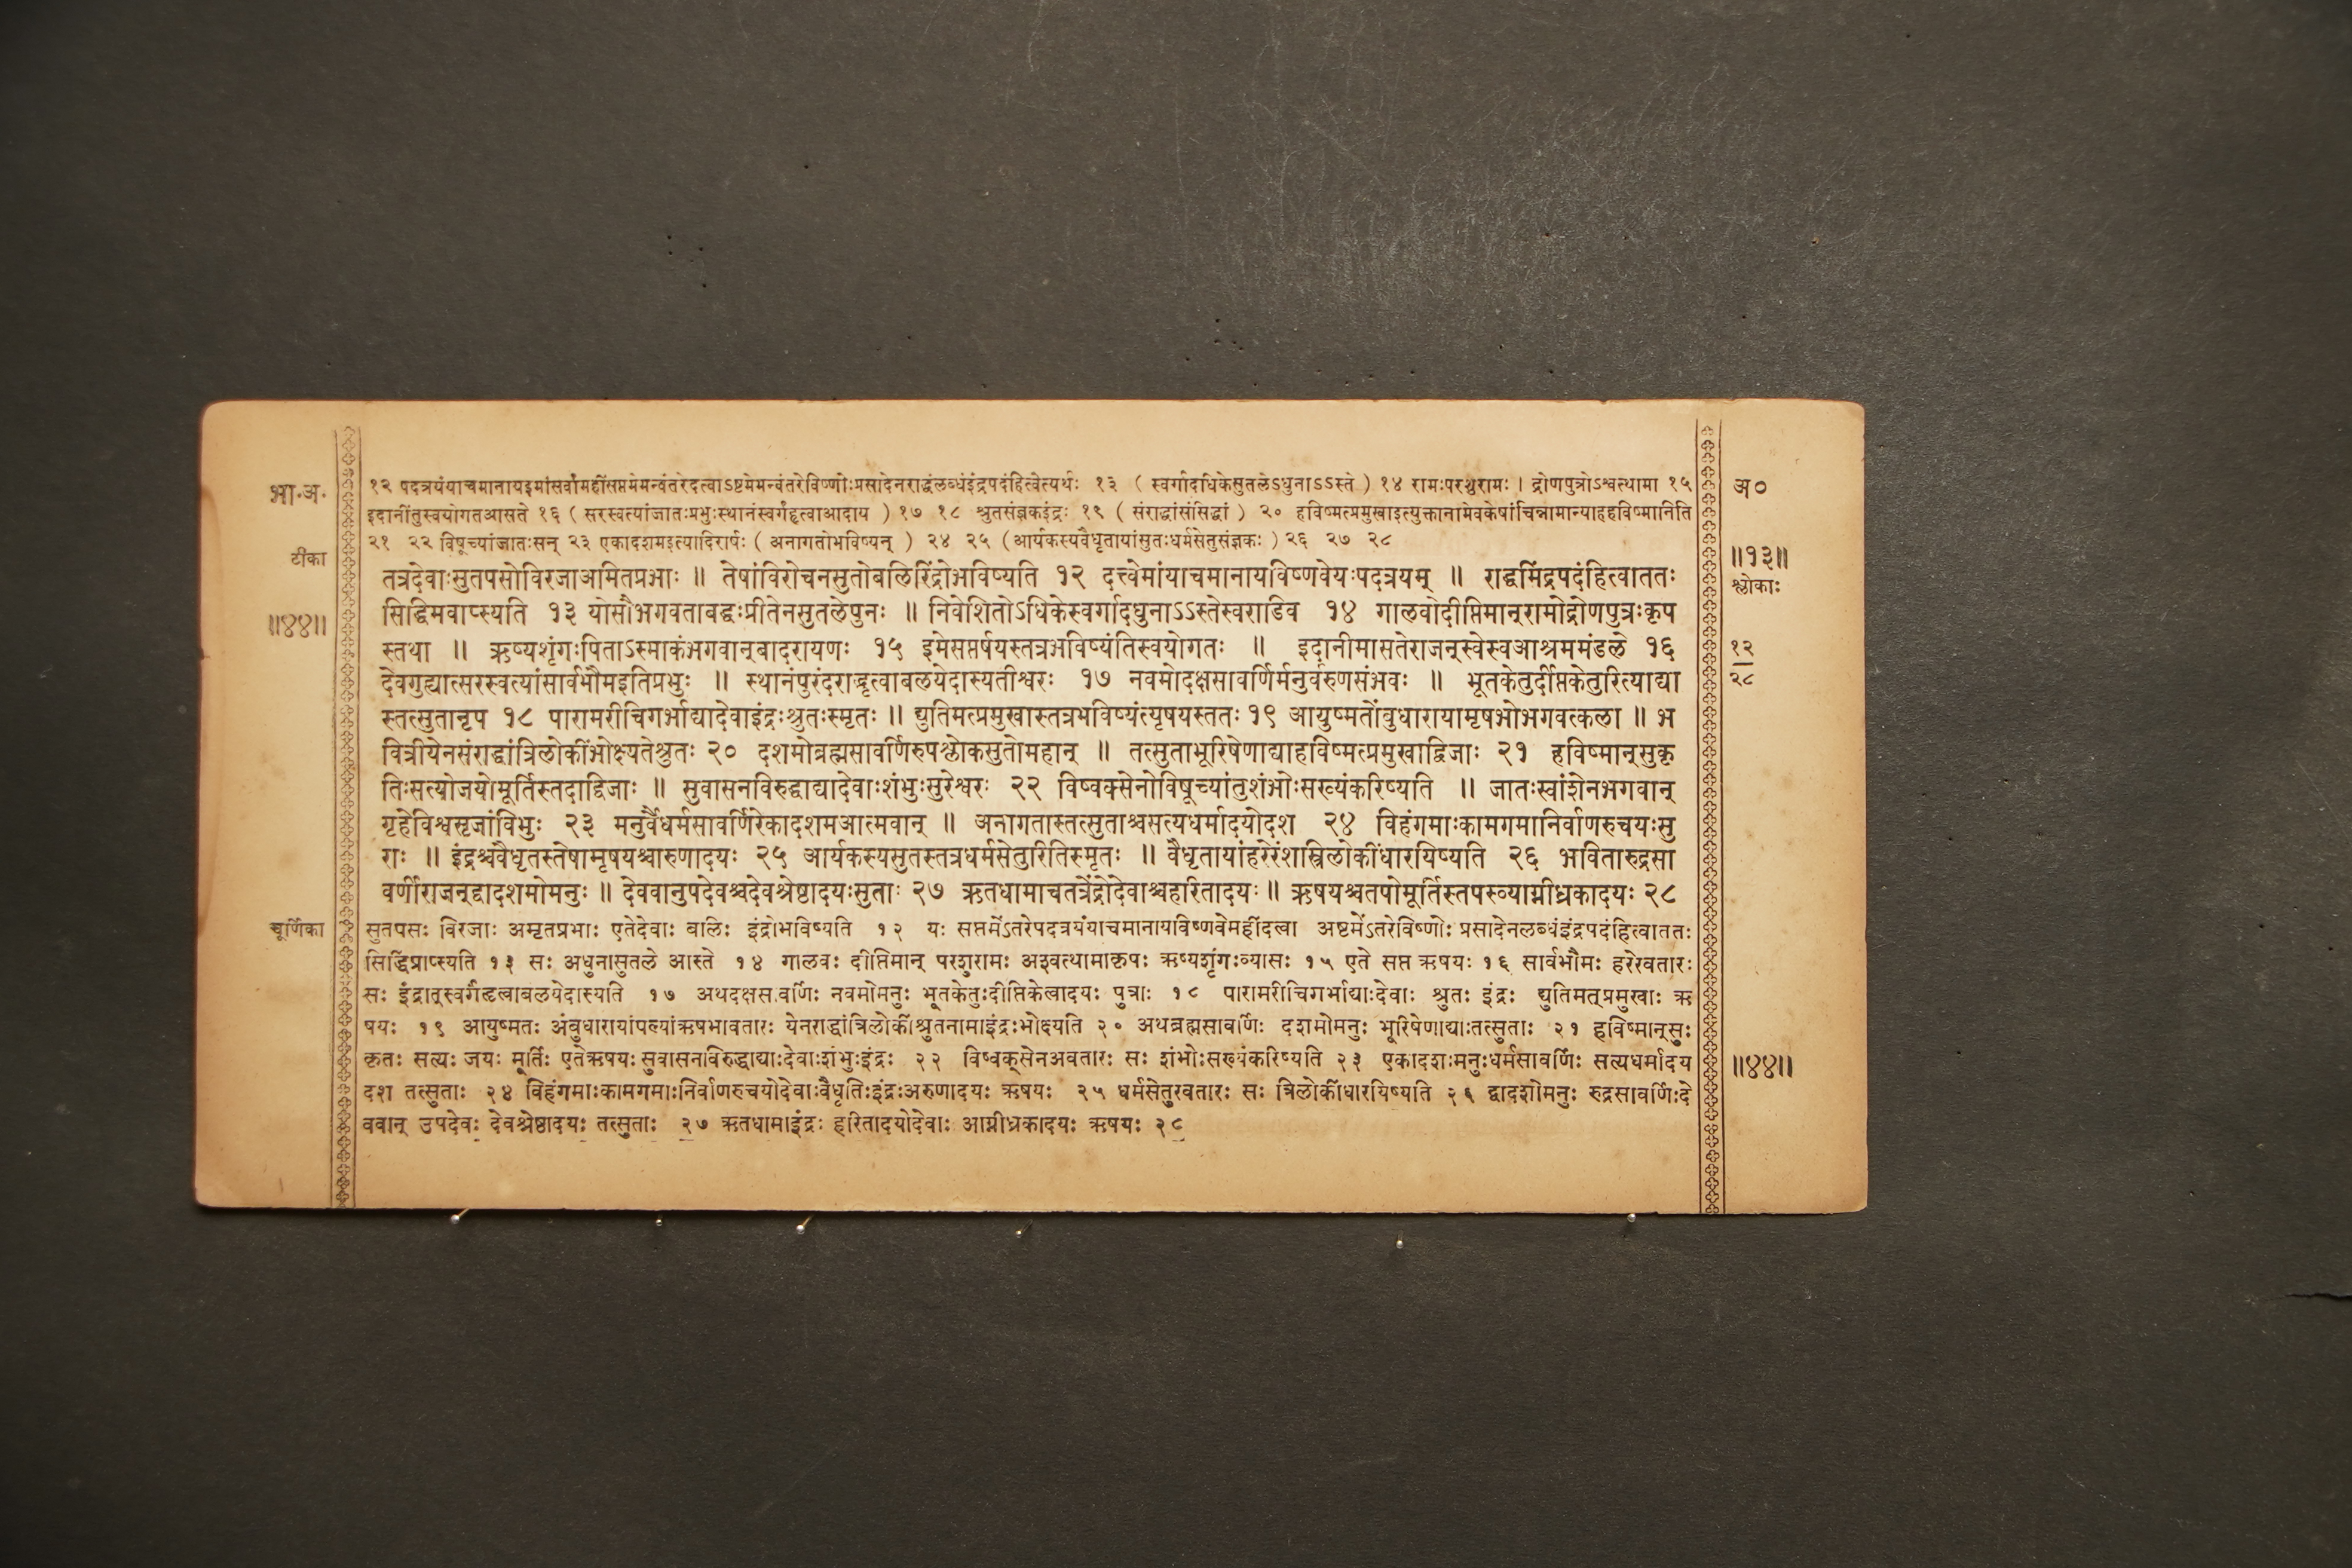 भा.अ.
टीका
॥४४॥
चूर्णिका
१२ पदत्रयंयाचमानायइमांसर्वांमहींसप्तमेमन्वंतरेदत्वाऽष्टमेमन्वंतरेविष्णोःप्रसादेनराद्धंलब्धंइंद्रपदंहित्वेत्यर्थः १३ ( स्वर्गादधिकेसुतलेऽधुनाऽऽस्ते ) १४ रामःपरशुरामः । द्रोणपुत्रोऽश्वत्थामा १५
इदानींतुस्वयोगतआसते १६ ( सरस्वत्यांजातःप्रभुःस्थानंस्वर्गंहृत्वाआदाय ) १७ १८ श्रुतसंज्ञकइंद्रः १९ ( संराद्धांसंसिद्धां ) २० हविष्मत्प्रमुखाइत्युक्तानामेवकेषांचिन्नामान्याहहविष्मानिति
२१ २२ विषूच्यांजातःसन् २३ एकादशमइत्यादिरार्षः ( अनागतोभविष्यन् ) २४ २५ (आर्यकस्यवैधृतायांसुतःधर्मसेतुसंज्ञकः ) २६ २७ २८
तत्रदेवाःसुतपसोविरजाअमितप्रभाः ॥ तेषांविरोचनसुतोबलिरिंद्रोभविष्यति १२ दत्त्वेमांयाचमानायविष्णवेयःपदत्रयम् ॥ राद्धमिंद्रपदंहित्वाततः
सिद्धिमवाप्स्यति १३ योसौभगवताबद्धःप्रीतेनसुतलेपुनः ॥ निवेशितोऽधिकेस्वर्गादधुनाऽऽस्तेस्वराडिव १४ गालवोदीप्तिमान्रामोद्रोणपुत्रःकृप
स्तथा ॥ ऋष्यशृंगःपिताऽस्माकंभगवान्बादरायणः १५ इमेसप्तर्षयस्तत्रभविष्यंतिस्वयोगतः ॥ इदानीमासतेराजन्स्वेस्वआश्रममंडले १६
देवगुह्यात्सरस्वत्यांसार्वभौमइतिप्रभुः ॥ स्थानंपुरंदराद्धृत्वाबलयेदास्यतीश्वरः १७ नवमोदक्षसावर्णिर्मनुर्वरुणसंभवः ॥ भूतकेतुर्दीप्तकेतुरित्याद्या
स्तत्सुतानृप १८ पारामरीचिगर्भाद्यादेवाइंद्रःश्रुतःस्मृतः ॥ द्युतिमत्प्रमुखास्तत्रभविष्यंत्यृषयस्ततः १९ आयुष्मतोंबुधारायामृषभोभगवत्कला ॥ भ
वित्रीयेनसंराद्धांत्रिलोकींभोक्ष्यतेश्रुतः २० दशमोब्रह्मसावर्णिरुपश्लोकसुतोमहान् ॥ तत्सुताभूरिषेणाद्याहविष्मत्प्रमुखाद्विजाः २१ हविष्मान्सुकृ
तिःसत्योजयोमूर्तिस्तदाद्विजाः ॥ सुवासनविरुद्धाद्यादेवाःशंभुःसुरेश्वरः २२ विष्वक्सेनोविषूच्यांतुशंभोःसख्यंकरिष्यति ॥ जातःस्वांशेनभगवान्
गृहेविश्वसृजांविभुः २३ मनुर्वैधर्मसावर्णिरेकादशमआत्मवान् ॥ अनागतास्तत्सुताश्चसत्यधर्मादयोदश २४ विहंगमाःकामगमानिर्वाणरुचयःसु
राः ॥ इंद्रश्चवैधृतस्तेषामृषयश्चारुणादयः २५ आर्यकस्यसुतस्तत्रधर्मसेतुरितिस्मृतः ॥ वैधृतायांहरेरंशस्त्रिलोकींधारयिष्यति २६ भवितारुद्रसा
वर्णीराजन्द्वादशमोमनुः ॥ देववानुपदेवश्चदेवश्रेष्ठादयःसुताः २७ ऋतधामाचतत्रेंद्रोदेवाश्चहरितादयः ॥ ऋषयश्चतपोमूर्तिस्तपस्व्याग्नीध्रकादयः २८
सुतपसः विरजाः अमृतप्रभाः एतेदेवाः बालिः इंद्रोभविष्यति १२ यः सप्तमेंऽतरेपदत्रयंयाचमानायाविष्णवेमहींदत्वा अष्टमेंऽतरेविष्णोः प्रसादेनलब्धंइंद्रपदंहित्वाततः
सिद्धिंप्राप्स्यति १३ सः अधुनासुतले आस्ते १४ गालवः दीप्तिमान् परशुरामः अश्वत्थामाकृपः ऋष्यशृंगःव्यासः १५ एते सप्त ऋषयः १६ सार्वभौमः हरेरवतारः
सः इंद्रात्स्वर्गंहृत्वाबलयेदास्यति १७ अथदक्षस.वर्णिः नवमोमनुः भूतकेतुःदीप्तिकेत्वादयः पुत्राः १८ पारामरीचिगर्भाद्याःदेवाः श्रुतः इंद्रः द्युतिमत्प्रमुखाः ऋ
षयः १९ आयुष्मतः अंबुधारायांपत्न्यांऋषभावतारः येनराद्धांत्रिलोकींश्रुतनामाइंद्रःभोक्ष्यति २० अथब्रह्मसावर्णिः दशमोमनुः भूरिषेणाद्याःतत्सुताः २१ हविष्मान्सुः
कृतः सत्यः जयः मूर्तिः एतेऋषयः सुवासनाविरुद्धाद्याःदेवाःशंभुःइंद्रः २२ विष्वक्सेनअवतारः सः शंभोःसख्यंकरिष्यति २३ एकादशःमनुःधर्मसावर्णिः सत्यधर्मादय
दश तत्सुताः २४ विहंगमाःकामगमाःनिर्वाणरुचयोदेवाःवैधृतिःइंद्रःअरुणादयः ऋषयः २५ धर्मसेतुरवतारः सः त्रिलोकींधारयिष्यति २६ द्वादशोमनुः रुद्रसावर्णिःदे
ववान् उपदेवः देवश्रेष्ठादयः तत्सुताः २७ ऋतधामाइंद्रः हरितादयोदेवाः आग्नीध्रकादयः ऋषयः २८
अ०
॥१३॥
श्लोकाः
१२
२८
॥४४॥